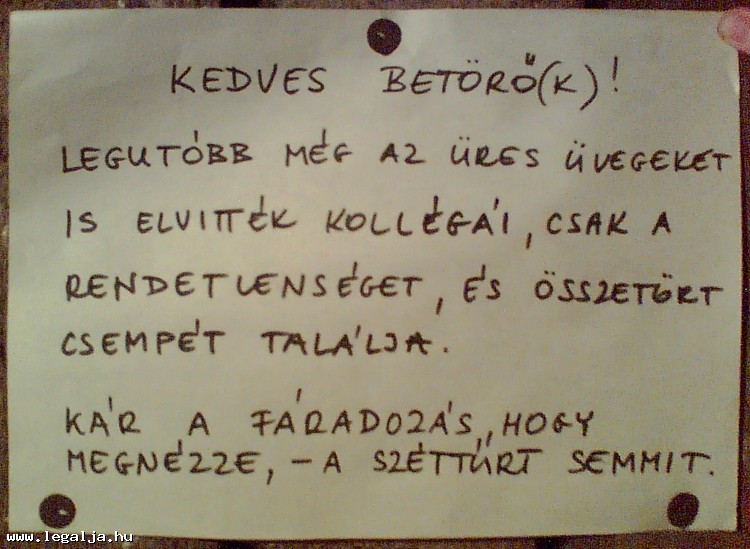 KEDVES BETÖRŐ(K)!
LEGUTÓBB MÉG AZ ÜRES ÜVEGEKET
IS ELVITTÉK KOLLÉGÁI, CSAK A
RENDETLENSÉGET, ÉS ÖSSZETÖRT
CSEMPÉT TALÁLJA.
KÁR A FÁRADOZÁS, HOGY
MEGNÉZZE, - A SZÉTTÚRT SEMMIT.
www.legalja.hu